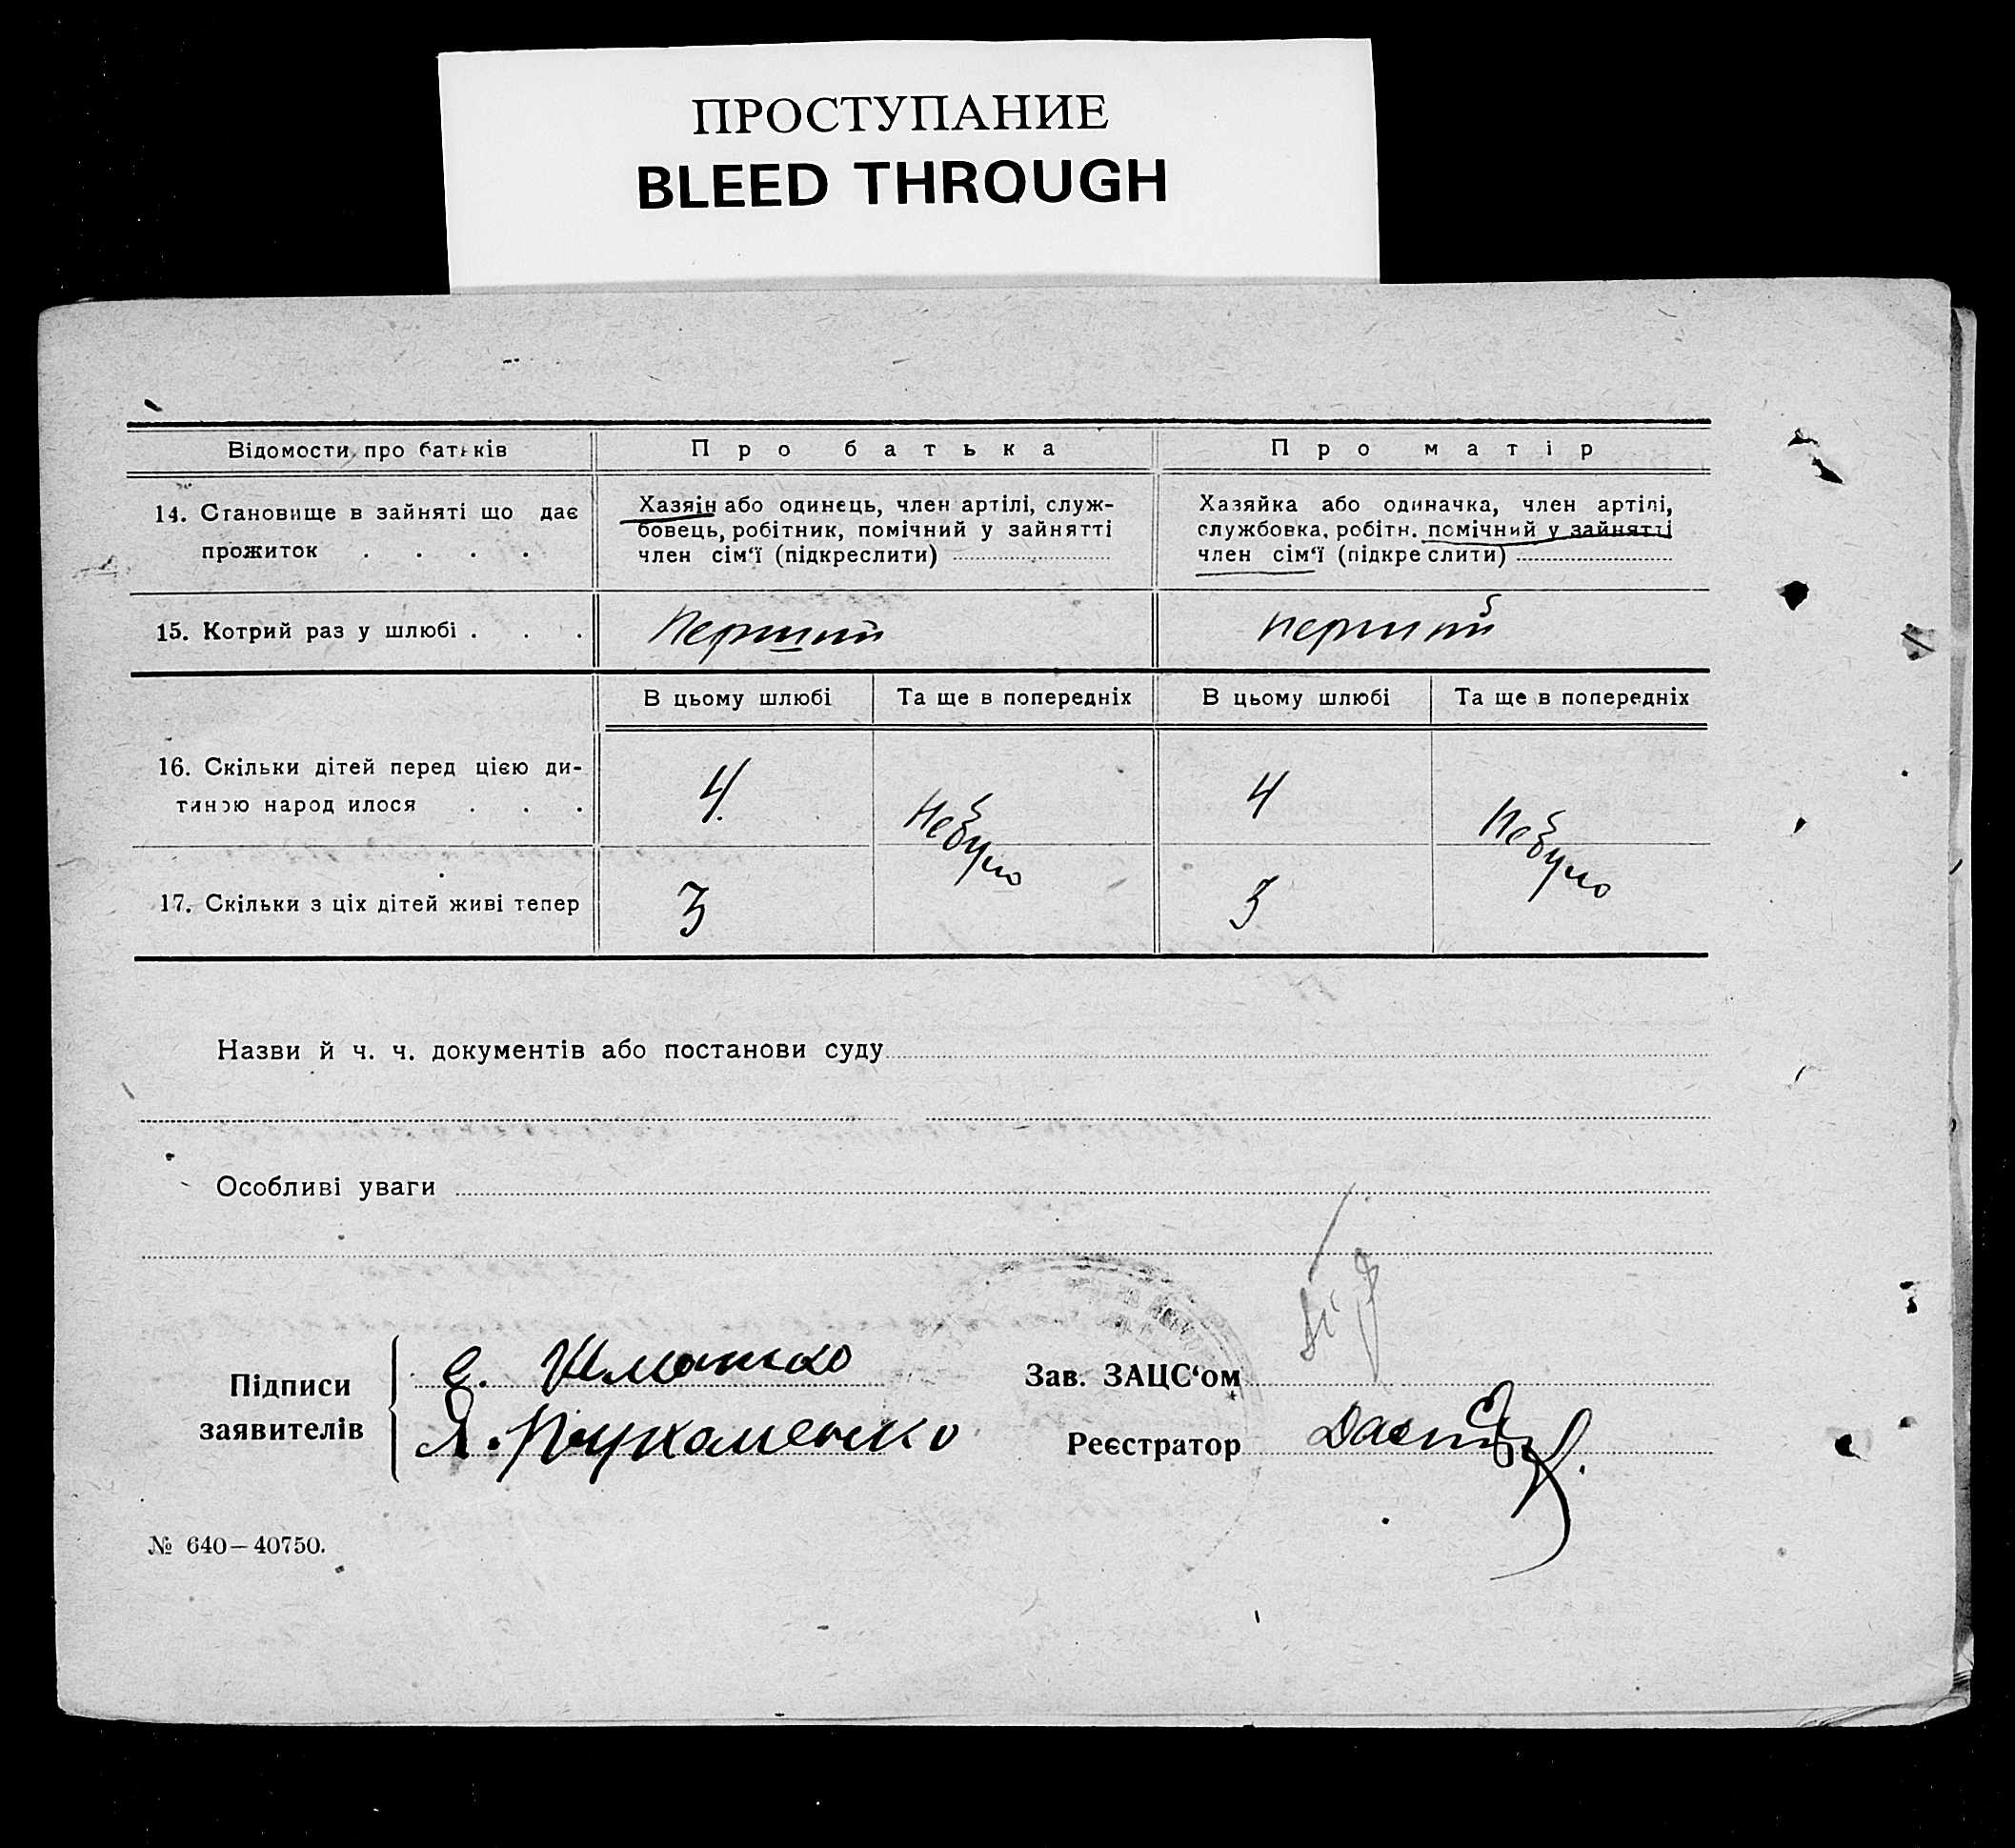 ПРОСТУПАНИЕ
BLEED THROUGH
Відомости про батьків
Про батька
Про матір
14. Становище в зайняті що дає
прожиток . . . .
Хазяїн або одинець, член артілі, служ-
бовець, робітник, помічний у зайнятті
член сім‘ї (підкреслити)
Хазяйка або одиначка, член артілі,
службовка, робітн. помічний у зайнятті
член сім‘ї (підкреслити)
15. Котрий раз у шлюбі . . .
Перший
перший
В цьому шлюбі
Та ще в попередніх
В цьому шлюбі
Та ще в попередніх
16. Скільки дітей перед цією ди-
тиною народилося . . .
4.
Небуло
4
Небуло
17. Скільки з ціх дітей живі тепер
3
3
Назви й ч. ч. документів або постанови суду
Особливі уваги
Підписи
заявителів
Є.
Я.
Зав. ЗАЦС‘ом
Реєстратор
№ 640—40750.